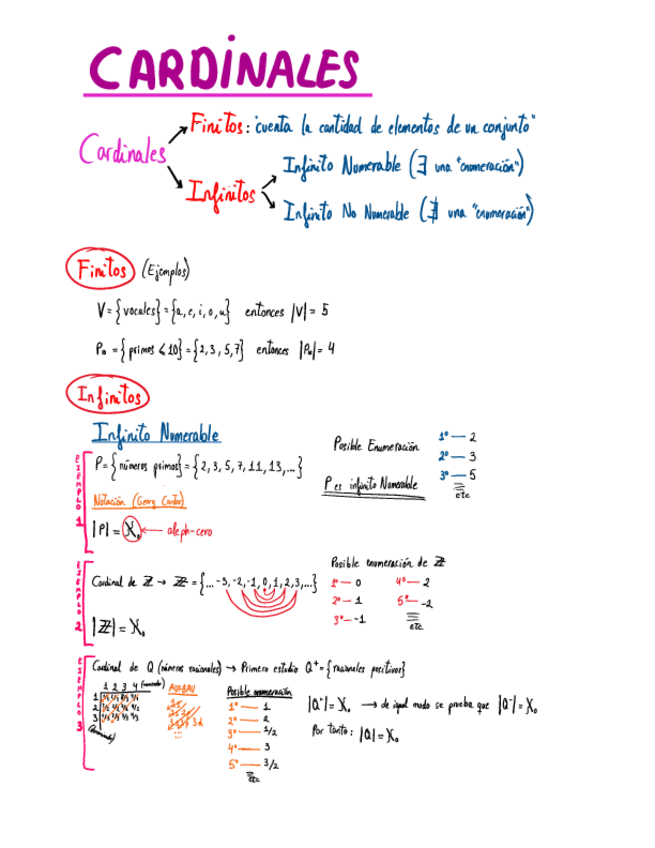 CARDINALES
Cardinales
Finitos: "cuenta la cantidad de elementos de un conjunto"
Infinitos
Infinito Numerable (∃ una "enumeración")
Infinito No Numerable (∄ una "enumeración")
Finitos (Ejemplos)
V = {vocales} = {a, e, i, o, u} entonces |V| = 5
P₁₀ = {primos ≤ 10} = {2, 3, 5, 7} entonces |P₁₀| = 4
Infinitos
Infinito Numerable
EJEMPLO 1
P = {números primos} = {2, 3, 5, 7, 11, 13, ...}
Notación (Georg Cantor)
|P| = ℵ₀ ← aleph-cero
Posible Enumeración
1º — 2
2º — 3
3º — 5
etc
P es infinito Numerable
EJEMPLO 2
Cardinal de ℤ → ℤ = {... -3, -2, -1, 0, 1, 2, 3, ...}
|ℤ| = ℵ₀
Posible enumeración de ℤ
1º — 0
2º — 1
3º — -1
4º — 2
5º — -2
etc
EJEMPLO 3
Cardinal de Q (números racionales) → Primero estudio Q⁺ = {racionales positivos}
1 2 3 4 (numerador)
1
2
3
(denominador)
AUFBAU
Posible enumeración
1º — 1
2º — 2
3º — 1/2
4º — 3
5º — 3/2
etc
|Q⁺| = ℵ₀ → de igual modo se prueba que |Q⁻| = ℵ₀
Por tanto: |Q| = ℵ₀